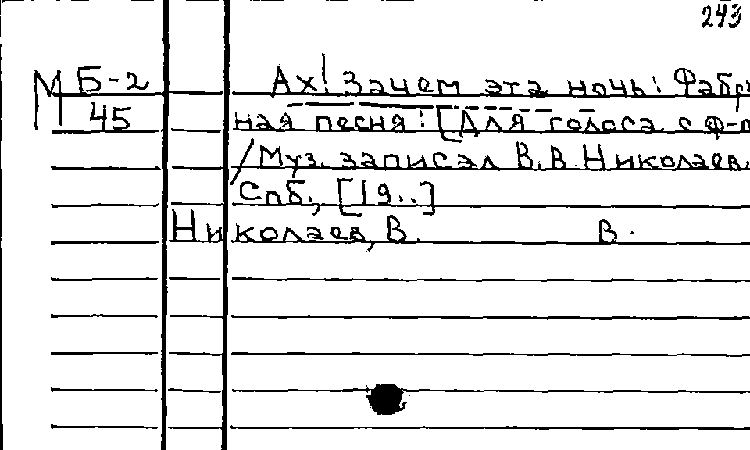 243
М Б-2 Ах! Зачем эта ночь: Фабр
45 ная песня: [Для голоса с ф-п
/Муз. записал В.В. Николаев.
Спб., [19..]
Николаев, В. В.